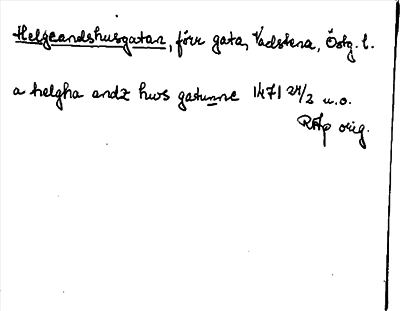 Helgeandshusgatan, förr gata, Vadstena, Östg. l.
a helgha andz hws gatunne 1471 24/2 u.o.
RAp orig.